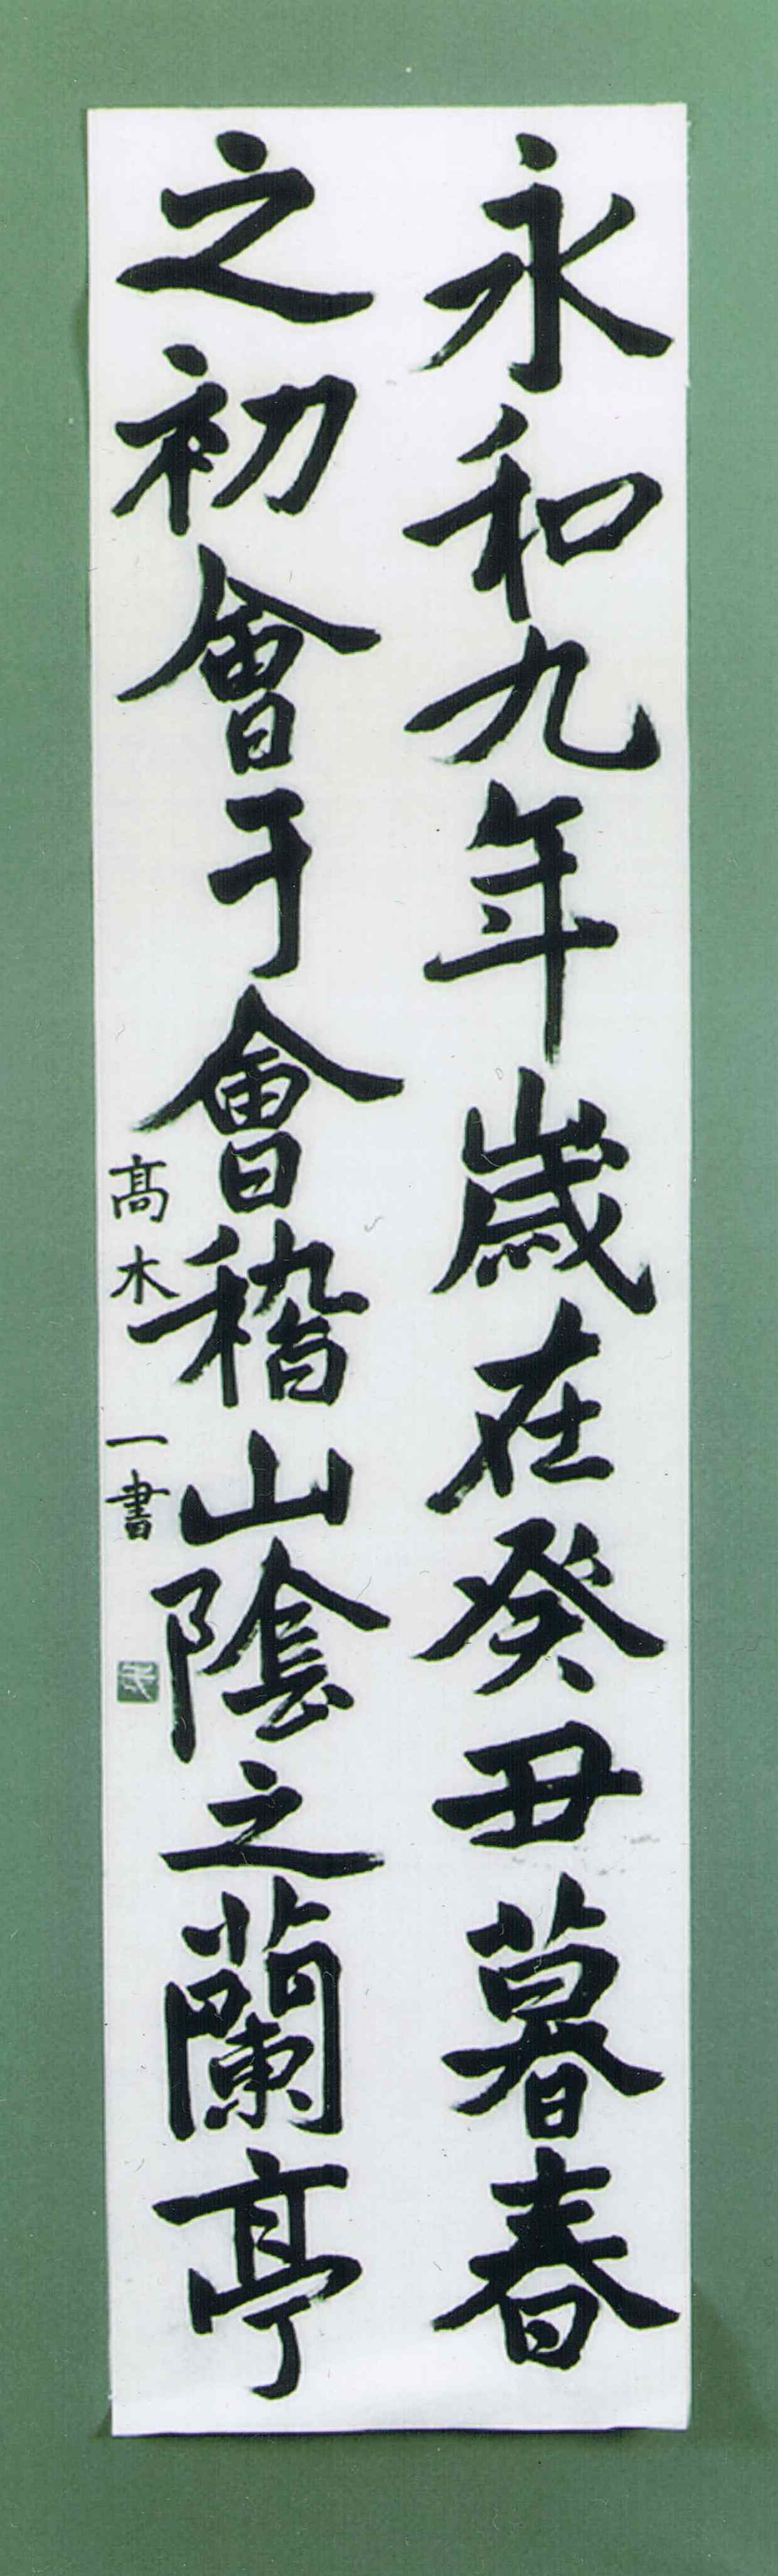 永和九年歳在癸丑暮春
之初會于會稽山陰之蘭亭
髙木一書